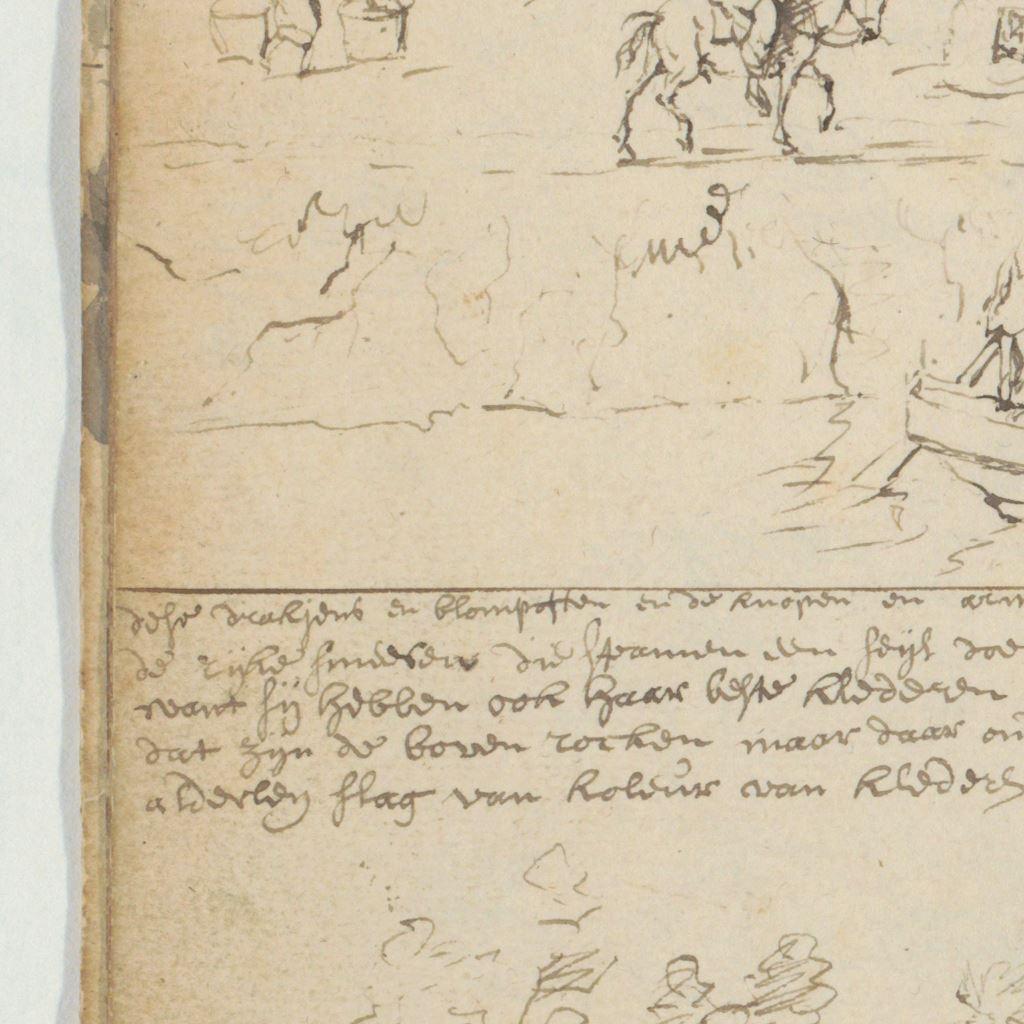 dese drakjens en blompotten en de knopen en
de rijke sineesen die spannen een seijl
want sij hebben ook haar beste klederen
dat zijn de boven rocken maar daar
alderley slag van koleur van klederen